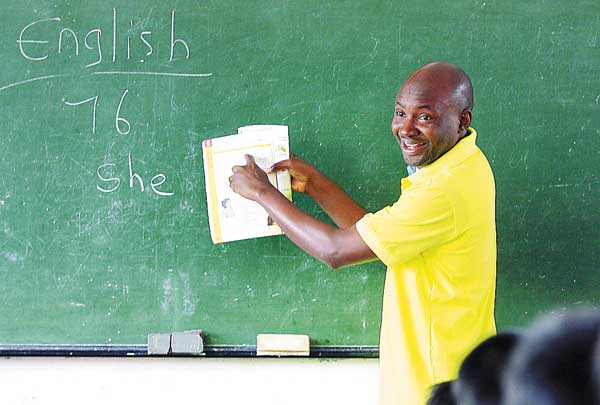 English
76
she